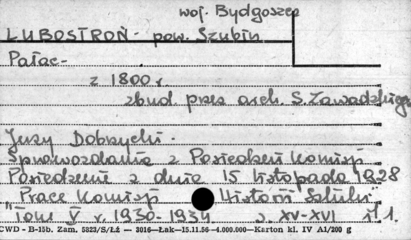 woj. Bydgoszcz
LUBOSTROŃ - pow. Szubin
Pałac -
z 1800 r.
zbud. przez arch. S. Zawadzkiego
Jerzy Dobrzycki.
Sprawozdania z Posiedzeń Komisji
Posiedzenie z dnia 15 listopada 1928
"Prace Komisji Historii Sztuki"
Tom V r. 1930-1934. s. XV-XVI il 1.
CWD - B-15b. Zam. 5823/S/Łź — 3016—Łak—15.11.56—4.000.000—Karton kl. IV A1/200 g